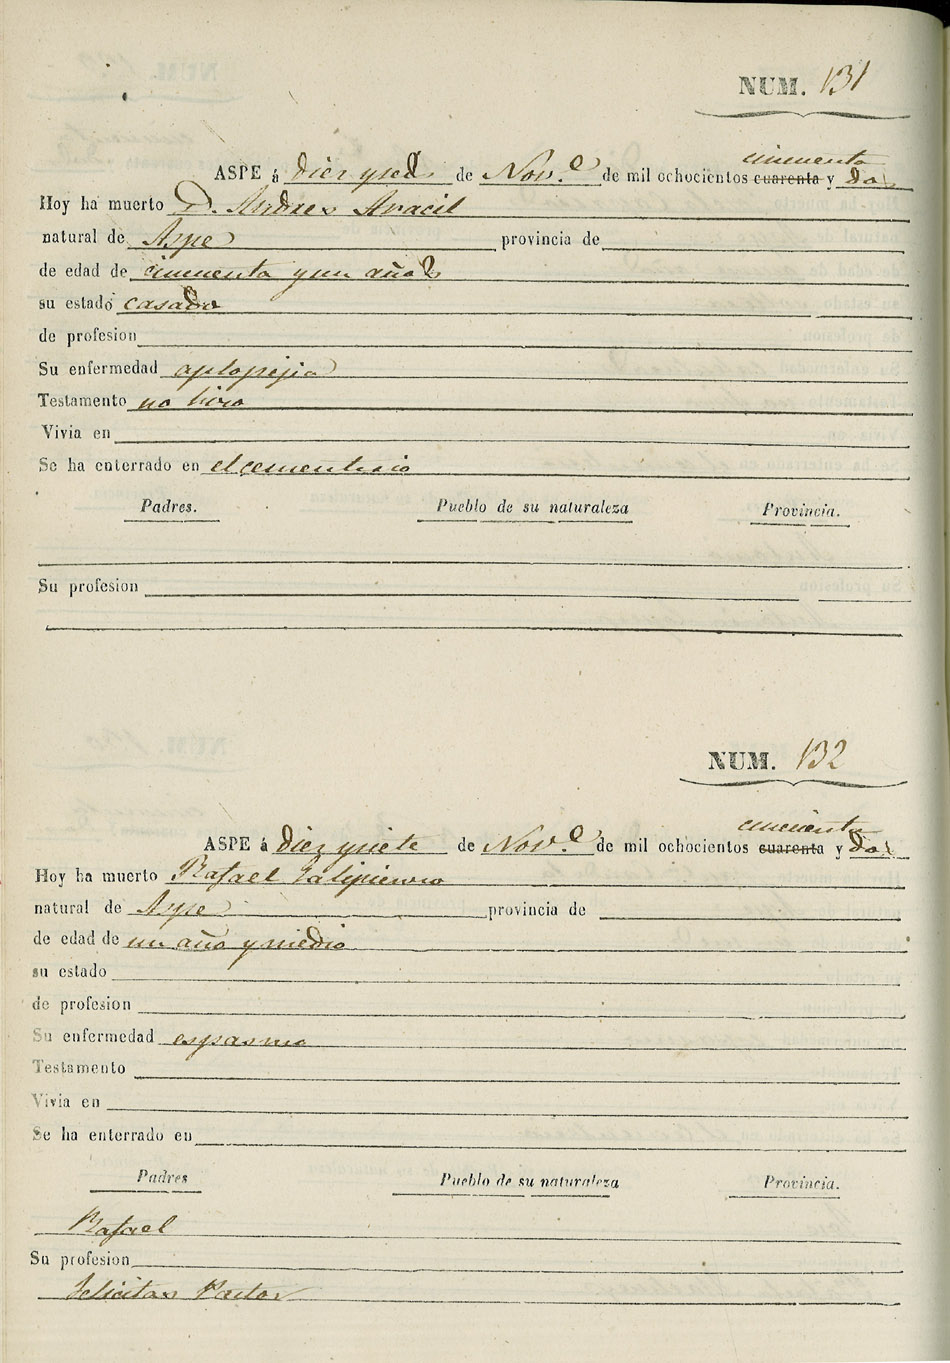 NUM. 131
cincuenta
ASPE á diez y seis de Nov.e de mil ochocientos cuarenta y dos
Hoy ha muerto D. Andres Aracil
natural de Aspe provincia de
de edad de cincuenta y un años
su estado casado
de profesion
Su enfermedad aplopejia
Testamento no hizo
Vivia en
Se ha enterrado en el cementerio
Padres. Pueblo de su naturaleza Provincia.
Su profesion
NUM. 132
cincuenta
ASPE á diez y siete de Nov.e de mil ochocientos cuarenta y dos
Hoy ha muerto Rafael
natural de Aspe provincia de
de edad de un año y medio
su estado
de profesion
Su enfermedad espasmo
Testamento
Vivia en
Se ha enterrado en
Padres Pueblo de su naturaleza Provincia.
Rafael
Su profesion
Felicitas Pastor